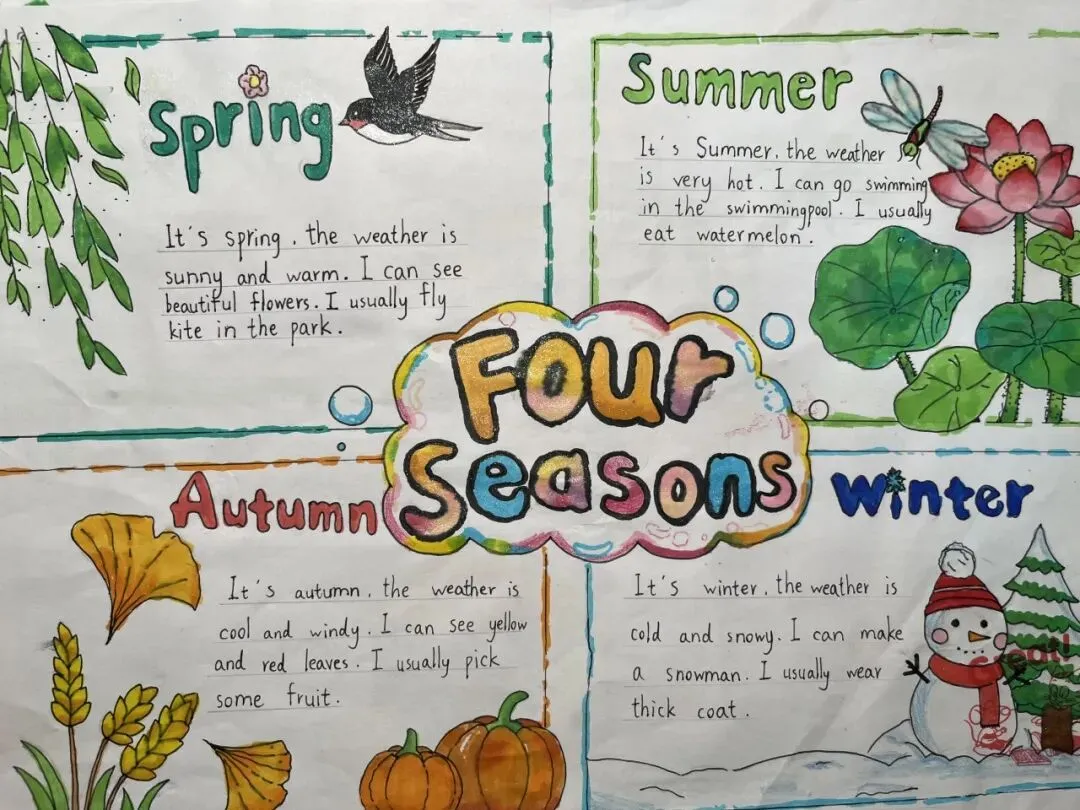 Spring
It's spring, the weather is
sunny and warm. I can see
beautiful flowers. I usually fly
kite in the park.
Summer
It's Summer, the weather
is very hot. I can go swimming
in the swimmingpool. I usually
eat watermelon.
Four
Seasons
Autumn
It's autumn, the weather is
cool and windy. I can see yellow
and red leaves. I usually pick
some fruit.
Winter
It's winter, the weather is
cold and snowy. I can make
a snowman. I usually wear
thick coat.